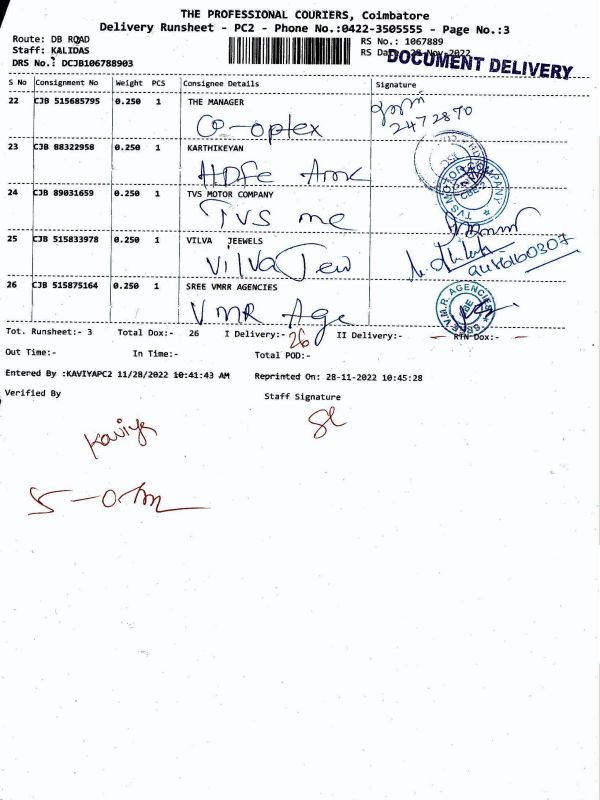 THE PROFESSIONAL COURIERS, Coimbatore
Delivery Runsheet - PC2 - Phone No.:0422-3505555 - Page No.:3
Route: DB ROAD
Staff: KALIDAS
DRS No.: DCJB106788903
RS No.: 1067889
RS Date: 28-Nov-2022
DOCUMENT DELIVERY
S No Consignment No Weight PCS Consignee Details Signature
22 CJB 515685795 0.250 1 THE MANAGER
Co-optex
2472870
23 CJB 88322958 0.250 1 KARTHIKEYAN
HDFC Amc
24 CJB 89031659 0.250 1 TVS MOTOR COMPANY
TVS mc
TVS MOTOR COMPANY
25 CJB 515833978 0.250 1 VILVA JEEWELS
Vilva Jew
26 CJB 515875164 0.250 1 SREE VMRR AGENCIES
VMR Age
SREE V.M.R. AGENCIES
Tot. Runsheet:- 3 Total Dox:- 26 I Delivery:- 26 II Delivery:- RTN Dox:-
Out Time:- In Time:- Total POD:-
Entered By :KAVIYAPC2 11/28/2022 10:41:43 AM Reprinted On: 28-11-2022 10:45:28
Verified By Staff Signature
Kaviya